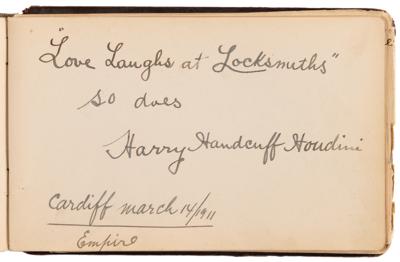 "Love Laughs at Locksmiths"
so does
Harry Handcuff Houdini
Cardiff march 14/1911
Empire